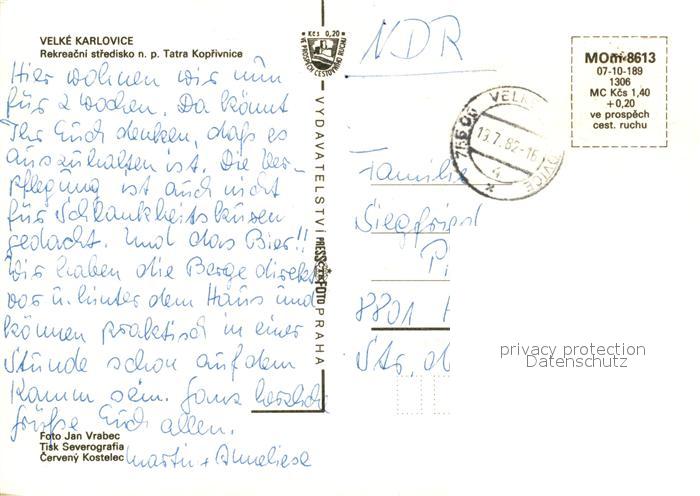 VELKÉ KARLOVICE
Rekreační středisko n. p. Tatra Kopřivnice
Hier wohnen wir nun
für 2 Wochen. Da könnt
Ihr Euch denken, daß es
auszuhalten ist. Die Ver-
pflegung ist auch nicht
für Schlankheitskuren
gedacht. Und das Bier!!
Wir haben die Berge direkt
vor u. hinter dem Haus und
können praktisch in einer
Stunde schon auf dem
Kamm sein. Ganz herzlich
grüße Euch allen.
Martin + Anneliese
Foto Jan Vrabec
Tisk Severografia
Červený Kostelec
Kčs 0,20
VE PROSPĚCH CESTOVNÍHO RUCHU
VYDAVATELSTVÍ PRESSFOTO PRAHA
NDR
VELKÉ
13.7.82-16
4
z
MOm 8613
07-10-189
1306
MC Kčs 1,40
+0,20
ve prospěch
cest. ruchu
Familie
Siegfried
8801
Str. d
privacy protection
Datenschutz